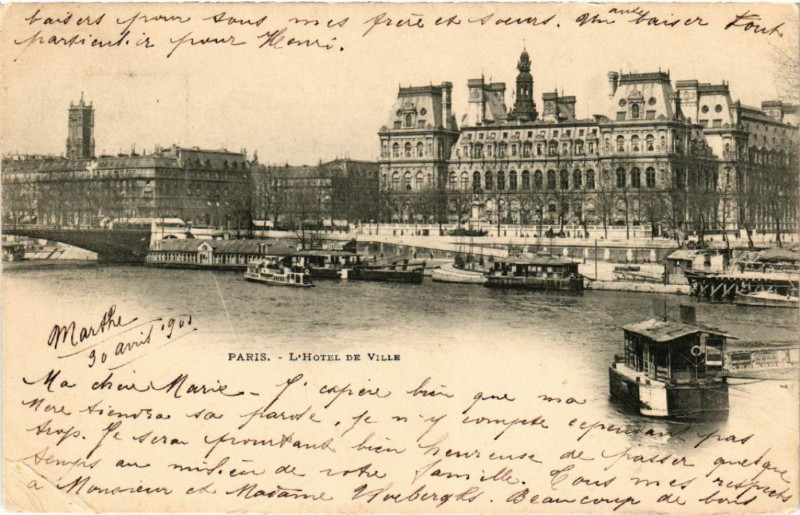 baisers pour tous mes frère et sœurs. Un autre baiser tout
particulier pour Henri.
Marthe
30 avril 1901.
PARIS. - L'HOTEL DE VILLE
Ma chère Marie - J'espère bien que ma
Mère tiendra sa parole, je n'y compte cependant pas
trop. Je serai pourtant bien heureuse de passer quelque
temps au milieu de votre famille. Tous mes respects
à Monsieur et Madame Beaucoup de bons